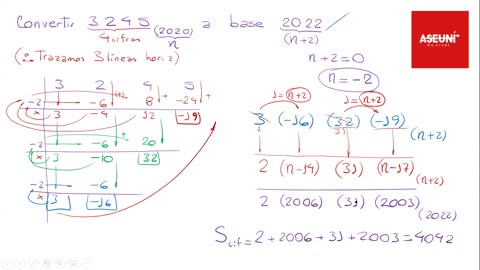 Convertir 3245 (2020) a base 2022
4cifras n (n+2)
ASEUNI
de nivel
(i. Trazamos 3 líneas horiz)
n+2=0
n=-2
3 2 4 5
-2 -6 8 -24
x 3 -4 12 -19
-2 -6 20
x 3 -10 32
-2 -6
x 3 -16
1=n+2 1=n+2
3 (-16) (32) (-19) (n+2)
2 31
2 (n-14) (31) (n-17) (n+2)
2 (2006) (31) (2003) (2022)
Scif = 2+2006+31+2003=4042